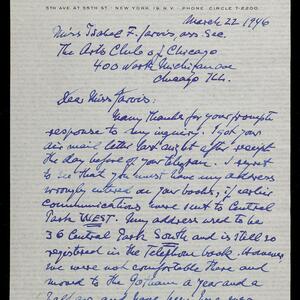 5TH AVE AT 55TH ST · NEW YORK 19 N.Y. · PHONE CIRCLE 7-2200
March 22 1946
Miss Isabel F. Jarvis, ass. Sec.
The Arts Club of Chicago
400 North Michigan ave
Chicago Ill.
Dear Miss Jarvis:
Many thanks for your prompt
response to my inquiry. I got your
air mail letter last night after receipt
the day before of your telegram. I regret
to see that you must have my address
wrongly entered on your books, if earlier
communications were sent to Central
Park WEST. My address used to be
36 Central Park South and is still so
registered in the Telephone book. However
we were not comfortable there and
moved to the Gotham a year and a
half ago and have been here